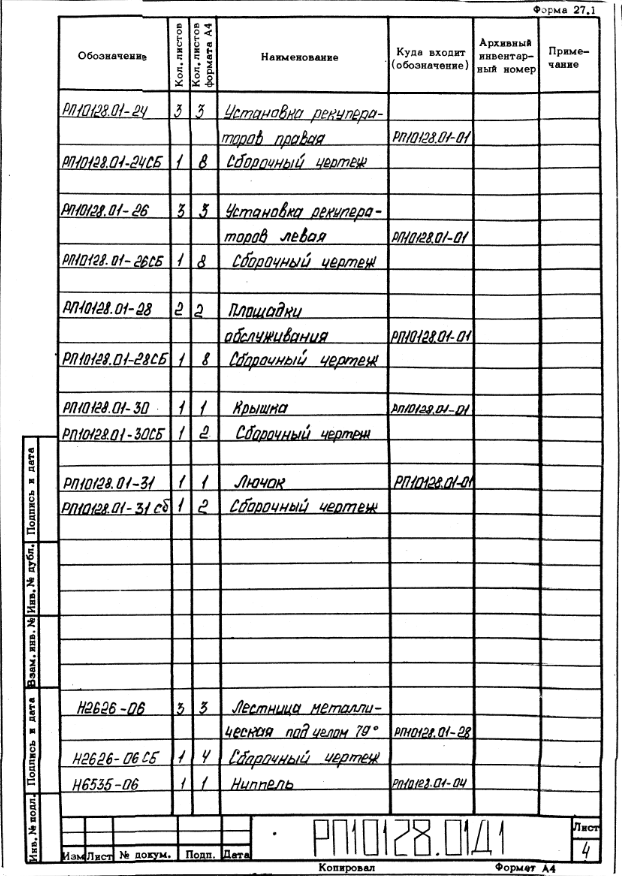 Форма 27.1
Обозначение Кол. листов Кол. листов формата А4 Наименование Куда входит (обозначение) Архивный инвентарный номер Примечание
РП10128.01-24 3 3 Установка рекупера-
торов правая РП10128.01-01
РП10128.01-24СБ 1 8 Сборочный чертеж
РП10128.01-26 3 3 Установка рекупера-
торов левая РП10128.01-01
РП10128.01-26СБ 1 8 Сборочный чертеж
РП10128.01-28 2 2 Площадки
обслуживания РП10128.01-01
РП10128.01-28СБ 1 8 Сборочный чертеж
РП10128.01-30 1 1 Крышка РП10128.01-01
РП10128.01-30СБ 1 2 Сборочный чертеж
РП10128.01-31 1 1 Лючок РП10128.01-01
РП10128.01-31 Сб 1 2 Сборочный чертеж
Н2626-06 3 3 Лестница металли-
ческая под углом 79° РП10128.01-28
Н2626-06 СБ 1 4 Сборочный чертеж
Н6535-06 1 1 Ниппель РП10128.01-04
Инв. № подл. Подпись и дата Взам. инв. № Инв. № дубл. Подпись и дата
РП10128.01Д1
Лист
4
Изм Лист № докум. Подп. Дата
Копировал Формат А4